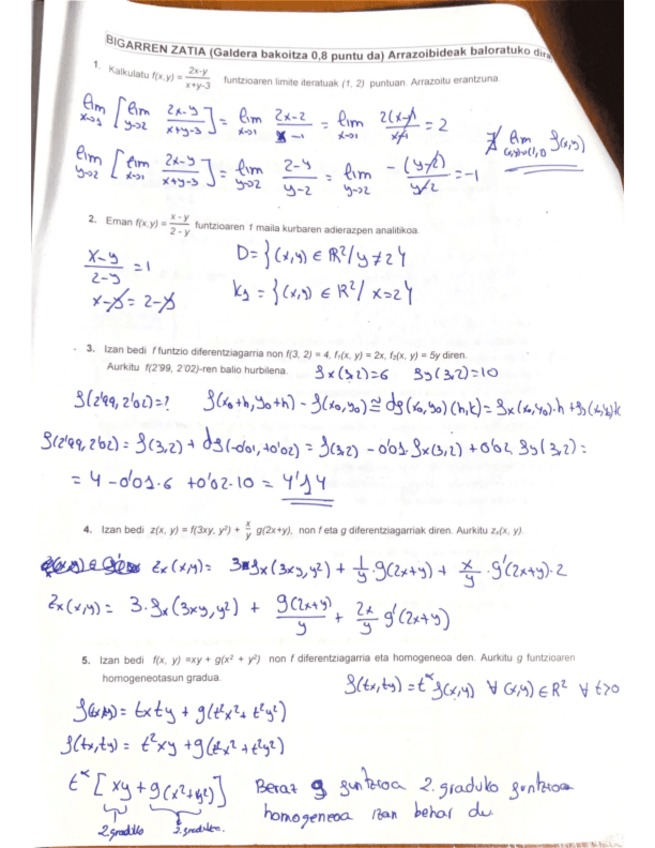 BIGARREN ZATIA (Galdera bakoitza 0,8 puntu da) Arrazoibideak baloratuko dira
1. Kalkulatu f(x,y) = (2x-y)/(x+y-3) funtzioaren limite iteratuak (1, 2) puntuan. Arrazoitu erantzuna.
lim x→1 [lim y→2 (2x-y)/(x+y-3)] = lim x→1 (2x-2)/(x-1) = lim x→1 2(x-1)/(x-1) = 2
∄ lim (x,y)→(1,2) f(x,y)
lim y→2 [lim x→1 (2x-y)/(x+y-3)] = lim y→2 (2-y)/(y-2) = lim y→2 -(y-2)/(y-2) = -1
2. Eman f(x,y) = (x-y)/(2-y) funtzioaren 1 maila kurbaren adierazpen analitikoa.
(x-y)/(2-y) = 1 D = {(x,y) ∈ R²/ y≠2}
x-y = 2-y K₁ = {(x,y) ∈ R²/ x=2}
3. Izan bedi f funtzio diferentziagarria non f(3, 2) = 4, f₁(x, y) = 2x, f₂(x, y) = 5y diren.
Aurkitu f(2'99, 2'02)-ren balio hurbilena. fx(3,2)=6 fy(3,2)=10
f(2'99, 2'02)=? f(x₀+h, y₀+k) - f(x₀,y₀) ≅ df(x₀,y₀)(h,k) = fx(x₀,y₀)·h + fy(x₀,y₀)k
f(2'99, 2'02) = f(3,2) + df(-0'01, +0'02) = f(3,2) - 0'01·fx(3,2) + 0'02 fy(3,2) =
= 4 - 0'01·6 + 0'02·10 = 4'14
4. Izan bedi z(x, y) = f(3xy, y²) + x/y g(2x+y), non f eta g diferentziagarriak diren. Aurkitu zₓ(x, y).
zx(x,y) = 3·fx(3xy,y²) + 1/y·g(2x+y) + x/y·g'(2x+y)·2
zx(x,y) = 3·fx(3xy,y²) + g(2x+y)/y + 2x/y g'(2x+y)
5. Izan bedi f(x, y) =xy + g(x² + y²) non f diferentziagarria eta homogeneoa den. Aurkitu g funtzioaren
homogeneotasun gradua.
f(tx,ty) = t^α f(x,y) ∀ (x,y) ∈ R² ∀ t>0
f(tx,ty) = txty + g(t²x² + t²y²)
f(tx,ty) = t²xy + g(t²x² + t²y²)
t^α [xy + g(x²+y²)] Beraz g funtzioa 2. graduko funtzioa
2.graduko 2.graduko homogeneoa izan behar du.